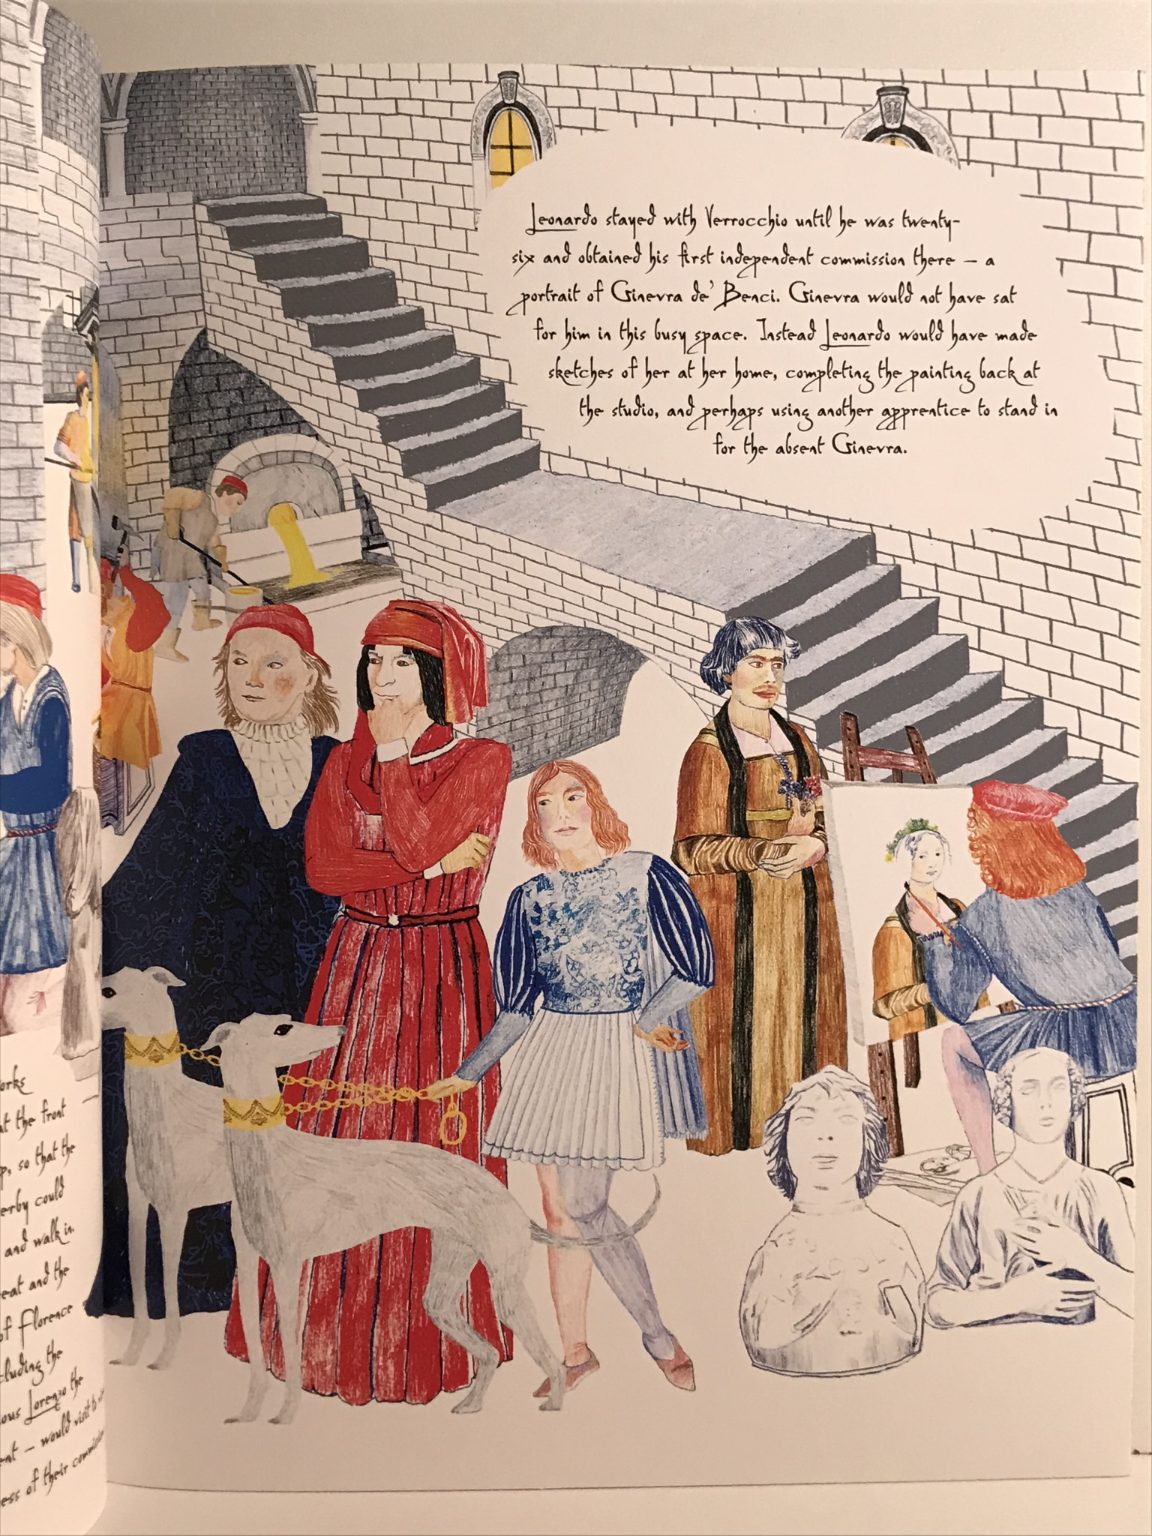 Leonardo stayed with Verrocchio until he was twenty-
six and obtained his first independent commission there – a
portrait of Ginevra de' Benci. Ginevra would not have sat
for him in this busy space. Instead Leonardo would have made
sketches of her at her home, completing the painting back at
the studio, and perhaps using another apprentice to stand in
for the absent Ginevra.
at the front
so that the
could
and walk in.
and the
of Florence
the
Lorenzo the
– would visit to
of their